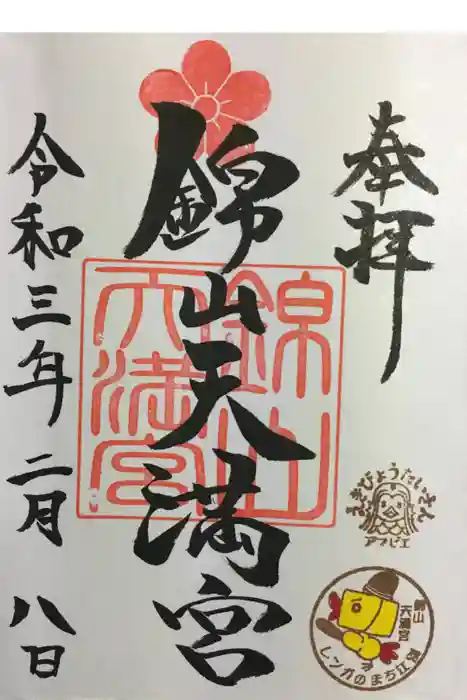 奉拝
錦山天満宮
令和三年二月八日
錦山天満宮
えきびょうたいさん
アマビエ
錦山天満宮
レンガのまち江別